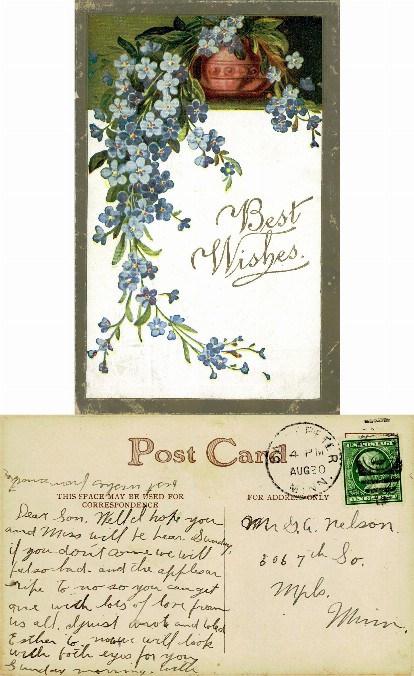 Best
Wishes.
Post Card
ST. PETER
4 PM
AUG 30
MINN.
THIS SPACE MAY BE USED FOR
CORRESPONDENCE
FOR ADDRESS ONLY
Dear Son. Well I hope you
and Miss will be hear Sunday,
if you don't come we will
feel so bad. and the apples ar
ripe to no so you can get
one with lots of love from
us all. I just wrote and told
Esther to. now we will look
with both eyes for you
Sunday morning. with
Mr G. A. Nelson.
306 7th So.
Mpls.
Minn.